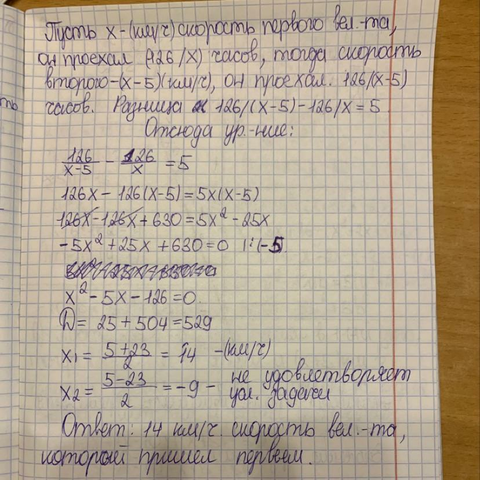 Пусть x-(км/ч) скорость первого вел.-та,
он проехал (126/x) часов, тогда скорость
второго-(x-5)(км/ч), он проехал. 126/(x-5)
часов. Разница 126/(x-5)-126/x=5
Отсюда ур-ние:
126/(x-5) - 126/x = 5
126x-126(x-5)=5x(x-5)
126x-126x+630=5x²-25x
-5x²+25x+630=0 |:(-5
x²-5x-126=0.
D=25+504=529
x₁= (5+23)/2 = 14 -(км/ч)
x₂= (5-23)/2 = -9 - не удовлетворяет
усл. задачи
Ответ: 14 км/ч. скорость вел.-та,
который пришел первым.